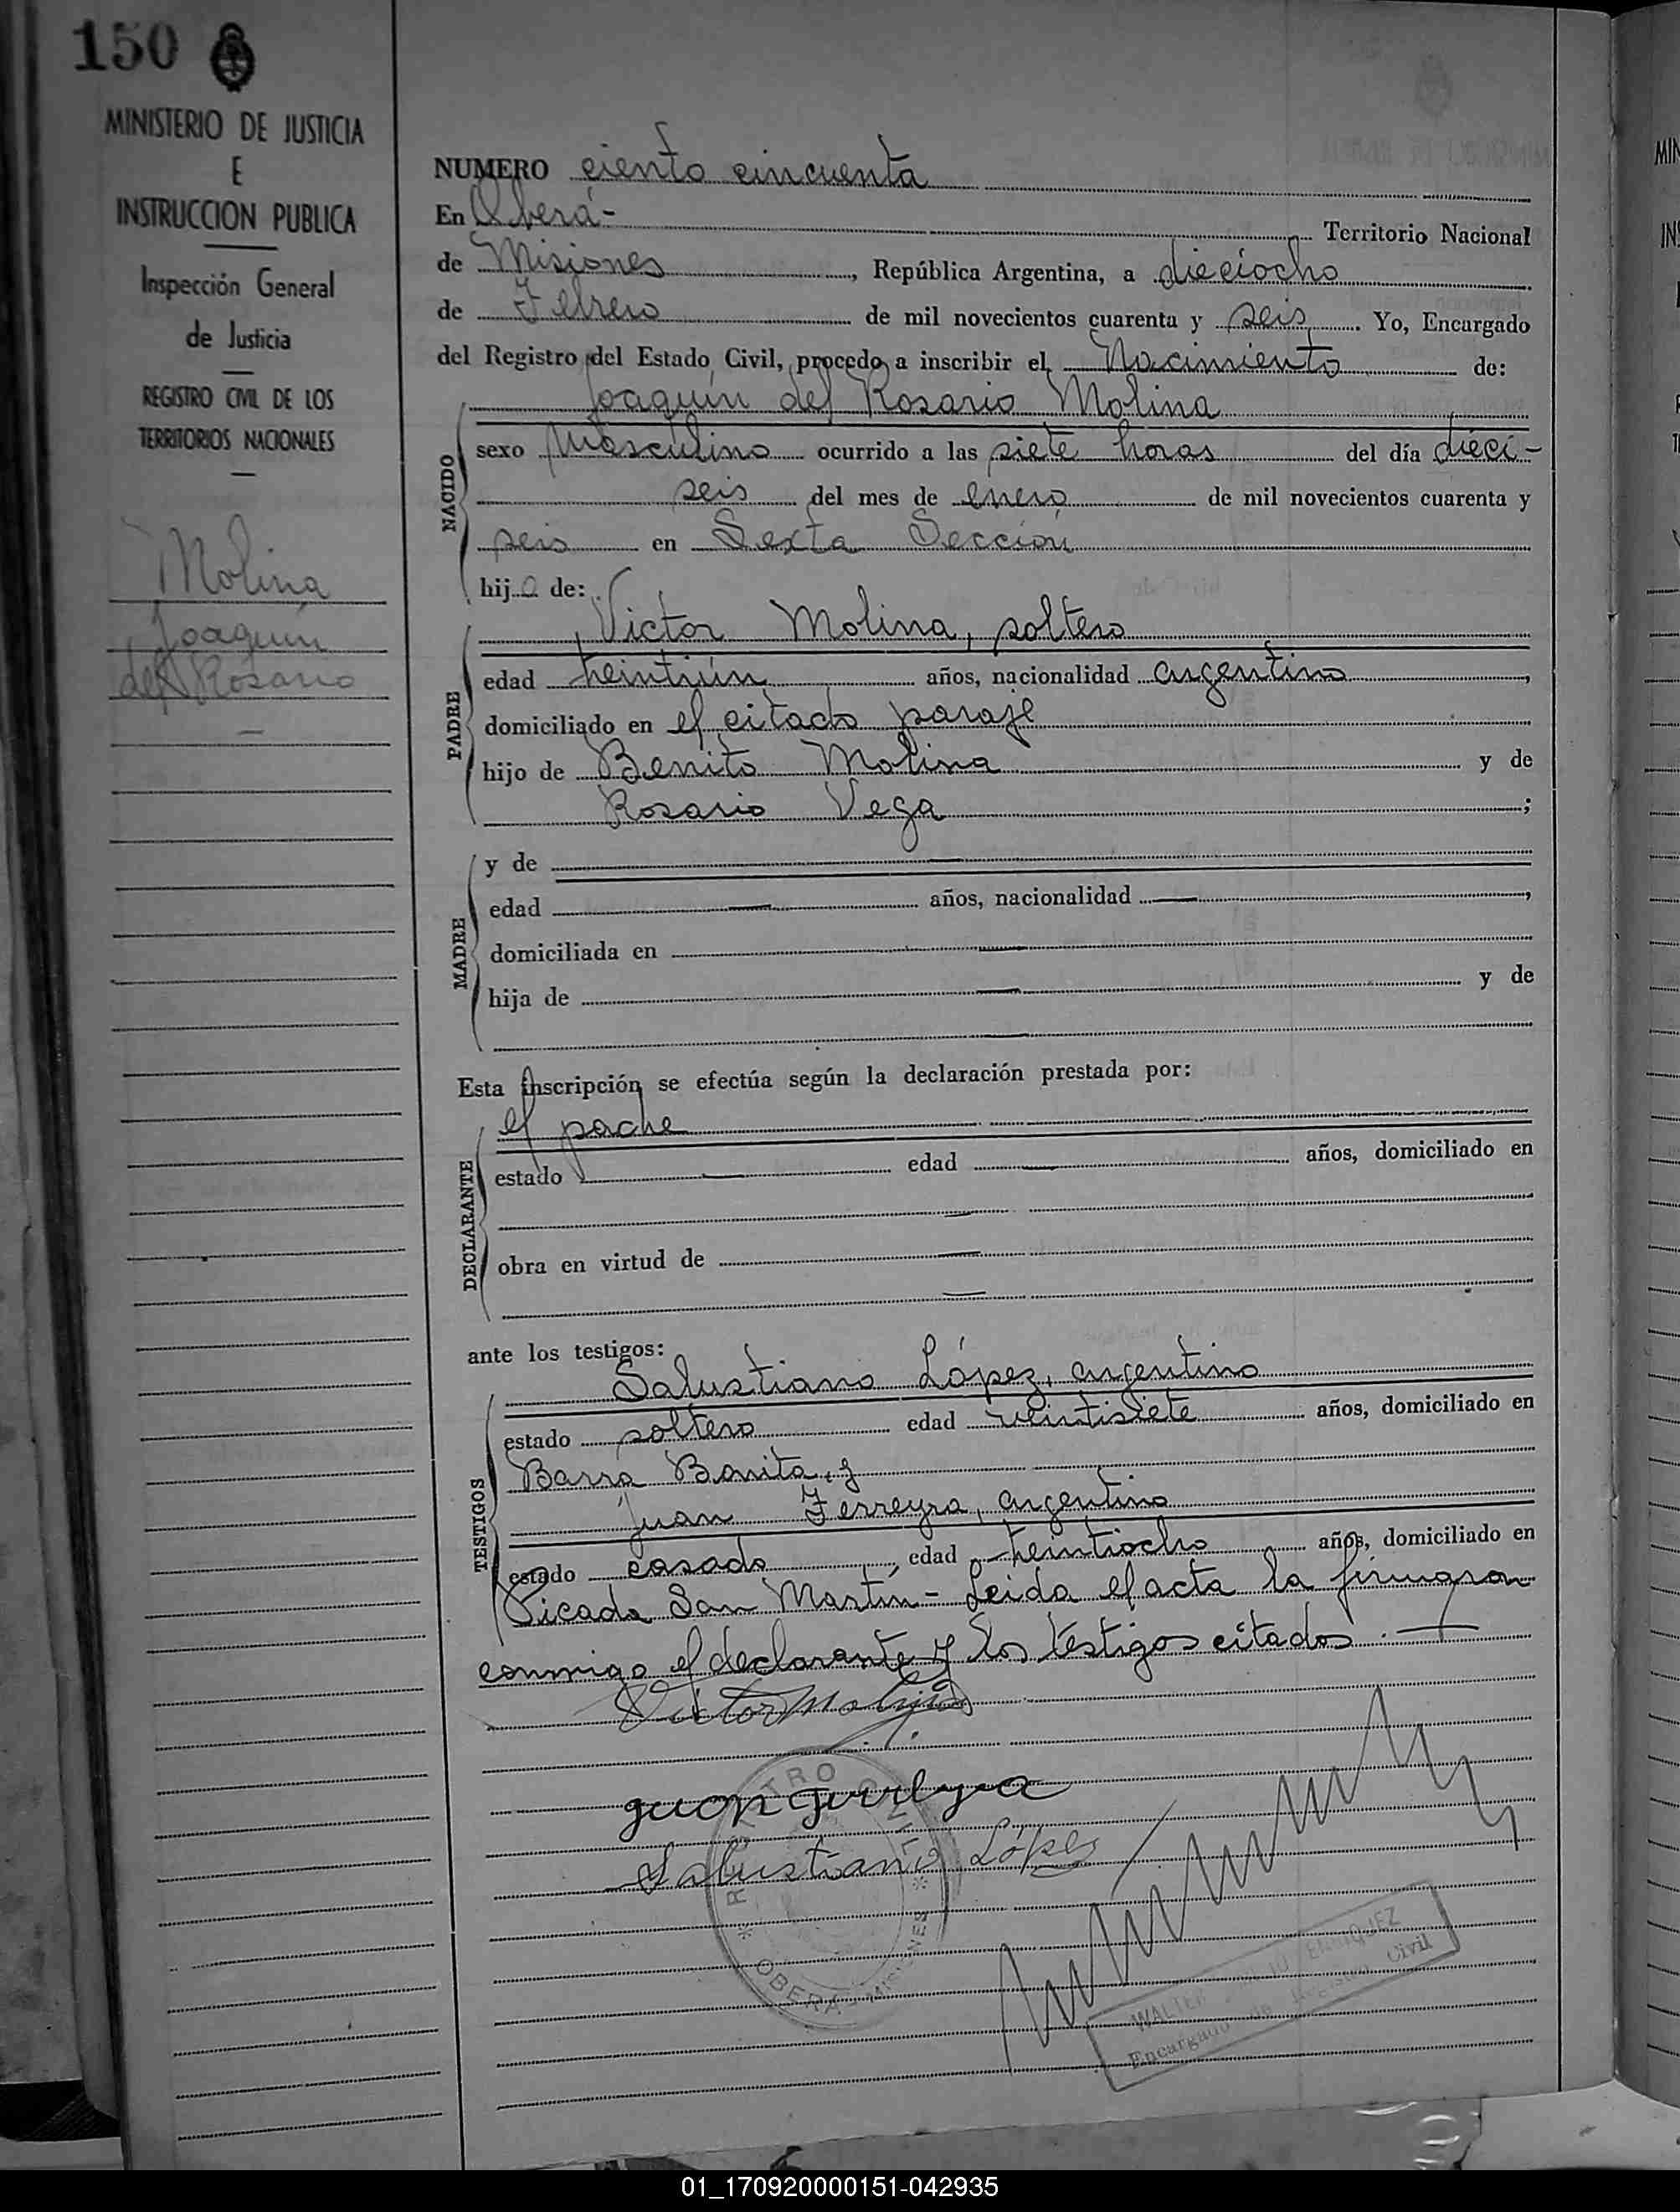 150
MINISTERIO DE JUSTICIA
E
INSTRUCCION PUBLICA
Inspección General
de Justicia
REGISTRO CIVIL DE LOS
TERRITORIOS NACIONALES
Molina
Joaquín
del Rosario
NUMERO ciento cincuenta
En Oberá- Territorio Nacional
de Misiones, República Argentina, a dieciocho
de Febrero de mil novecientos cuarenta y seis. Yo, Encargado
del Registro del Estado Civil, procedo a inscribir el Nacimiento de:
Joaquín del Rosario Molina
NACIDO
sexo Masculino ocurrido a las siete horas del día dieci-
seis del mes de enero de mil novecientos cuarenta y
seis en Sexta Sección
hijo de:
Victor Molina, soltero
PADRE
edad treintiún años, nacionalidad argentino,
domiciliado en el citado paraje
hijo de Benito Molina y de
Rosario Vega;
MADRE
y de —
edad — años, nacionalidad —,
domiciliada en —
hija de — y de
—
Esta inscripción se efectúa según la declaración prestada por:
el padre
DECLARANTE
estado — edad — años, domiciliado en
—
obra en virtud de —
—
ante los testigos:
Salustiano López, argentino
TESTIGOS
estado soltero edad veintisiete años, domiciliado en
Barra Bonita, y
Juan Ferreyra, argentino
estado casado, edad treintiocho años, domiciliado en
Picada San Martín- Leida el acta la firmaron
conmigo el declarante y los testigos citados. —
Victor Molina
Juan Ferreyra
Salustiano López
REGISTRO CIVIL
* OBERÁ - MISIONES *
WALTER ENRIQUEZ
Encargado de Registro Civil
01_170920000151-042935